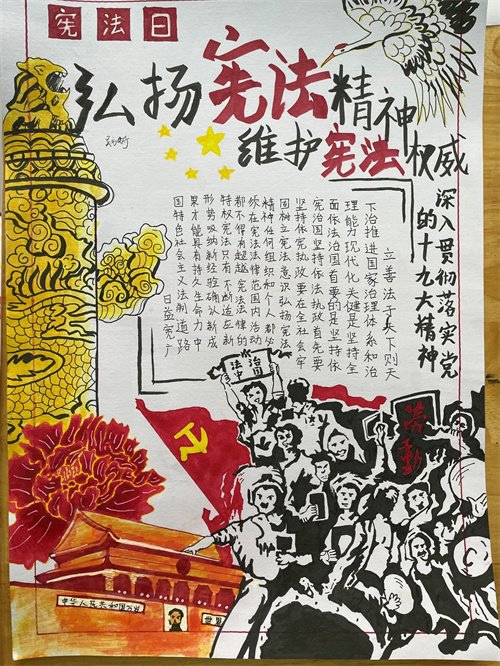 宪法日
弘扬宪法精神
维护宪法权威
深入贯彻落实党
的十九大精神
立善法于天下则天
下治推进国家治理体系和治
理能力现代化关健是坚持全
面依法治国首要的是坚持依
宪治国坚持依法执政首先要
坚持依宪执政要在全社会牢
固树立宪法意识弘扬宪法
精神任何组织和个人都必
须在宪法法律范围内活动
都不得有超越宪法法律的
特权宪法只有不断适应新
形势吸纳新经验确认新成
果才能具有持久生命力中
国特色社会主义法制道路
日益宽广
法治
中国
中华人民共和国
世界